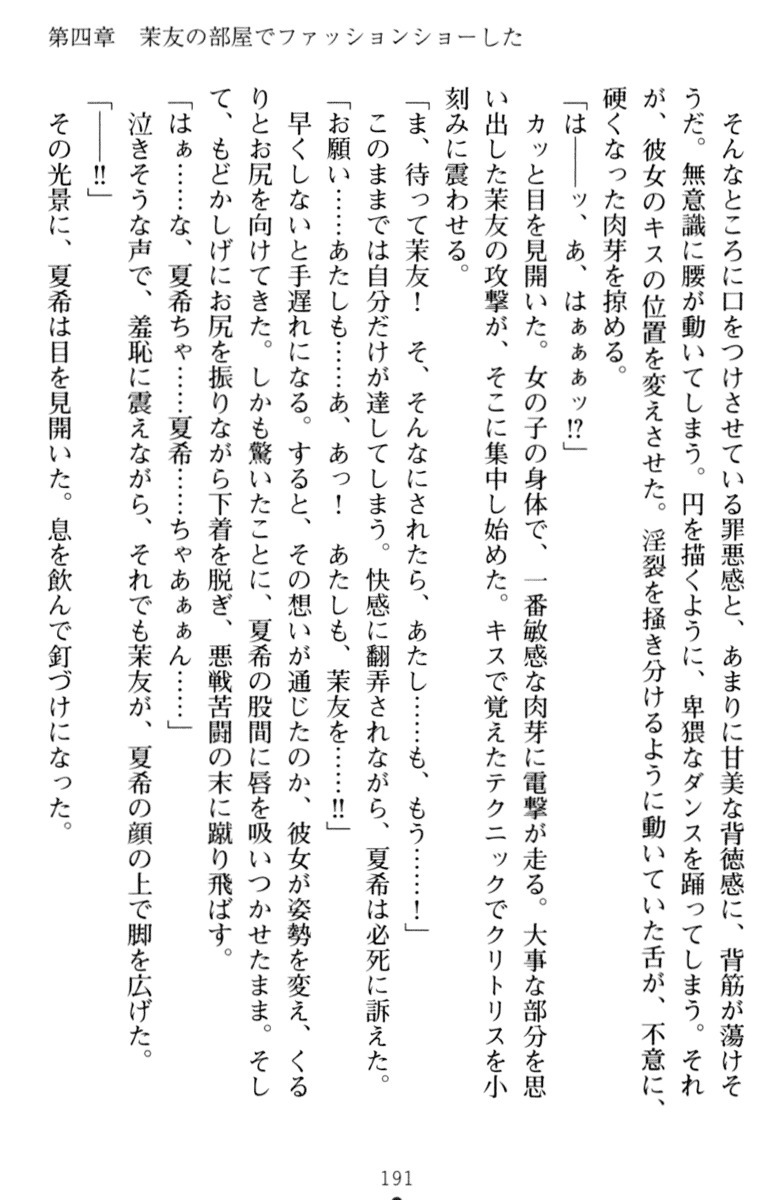 第四章　茉友の部屋でファッションショーした
そんなところに口をつけさせている罪悪感と、あまりに甘美な背徳感に、背筋が蕩けそ
うだ。無意識に腰が動いてしまう。円を描くように、卑猥なダンスを踊ってしまう。それ
が、彼女のキスの位置を変えさせた。淫裂を掻き分けるように動いていた舌が、不意に、
硬くなった肉芽を掠める。
「は――ッ、あ、はぁぁぁッ!?」
カッと目を見開いた。女の子の身体で、一番敏感な肉芽に電撃が走る。大事な部分を思
い出した茉友の攻撃が、そこに集中し始めた。キスで覚えたテクニックでクリトリスを小
刻みに震わせる。
「ま、待って茉友！　そ、そんなにされたら、あたし……も、もう……！」
このままでは自分だけが達してしまう。快感に翻弄されながら、夏希は必死に訴えた。
「お願い……あたしも……あ、あっ！　あたしも、茉友を……!!」
早くしないと手遅れになる。すると、その想いが通じたのか、彼女が姿勢を変え、くる
りとお尻を向けてきた。しかも驚いたことに、夏希の股間に唇を吸いつかせたまま。そし
て、もどかしげにお尻を振りながら下着を脱ぎ、悪戦苦闘の末に蹴り飛ばす。
「はぁ……な、夏希ちゃ……夏希……ちゃあぁぁん……」
泣きそうな声で、羞恥に震えながら、それでも茉友が、夏希の顔の上で脚を広げた。
「――!!」
その光景に、夏希は目を見開いた。息を飲んで釘づけになった。
191